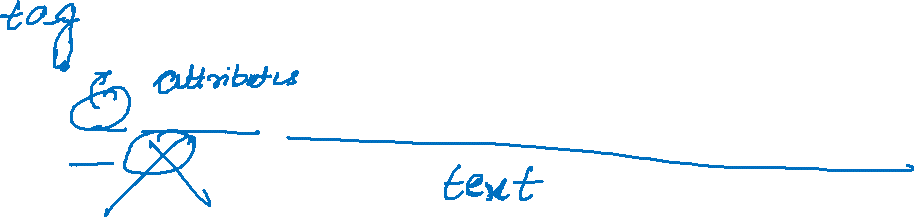 tag
attributes
text